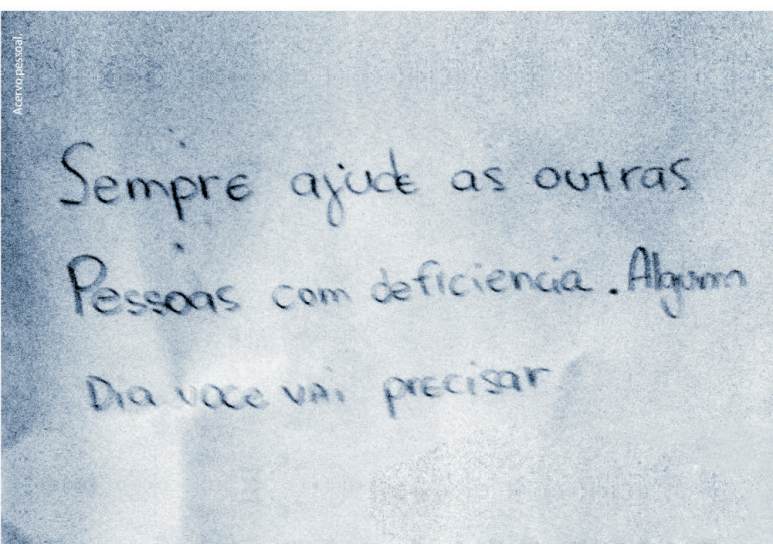 Acervo pessoal.
Sempre ajude as outras
Pessoas com deficiencia. Algum
Dia voce vai precisar